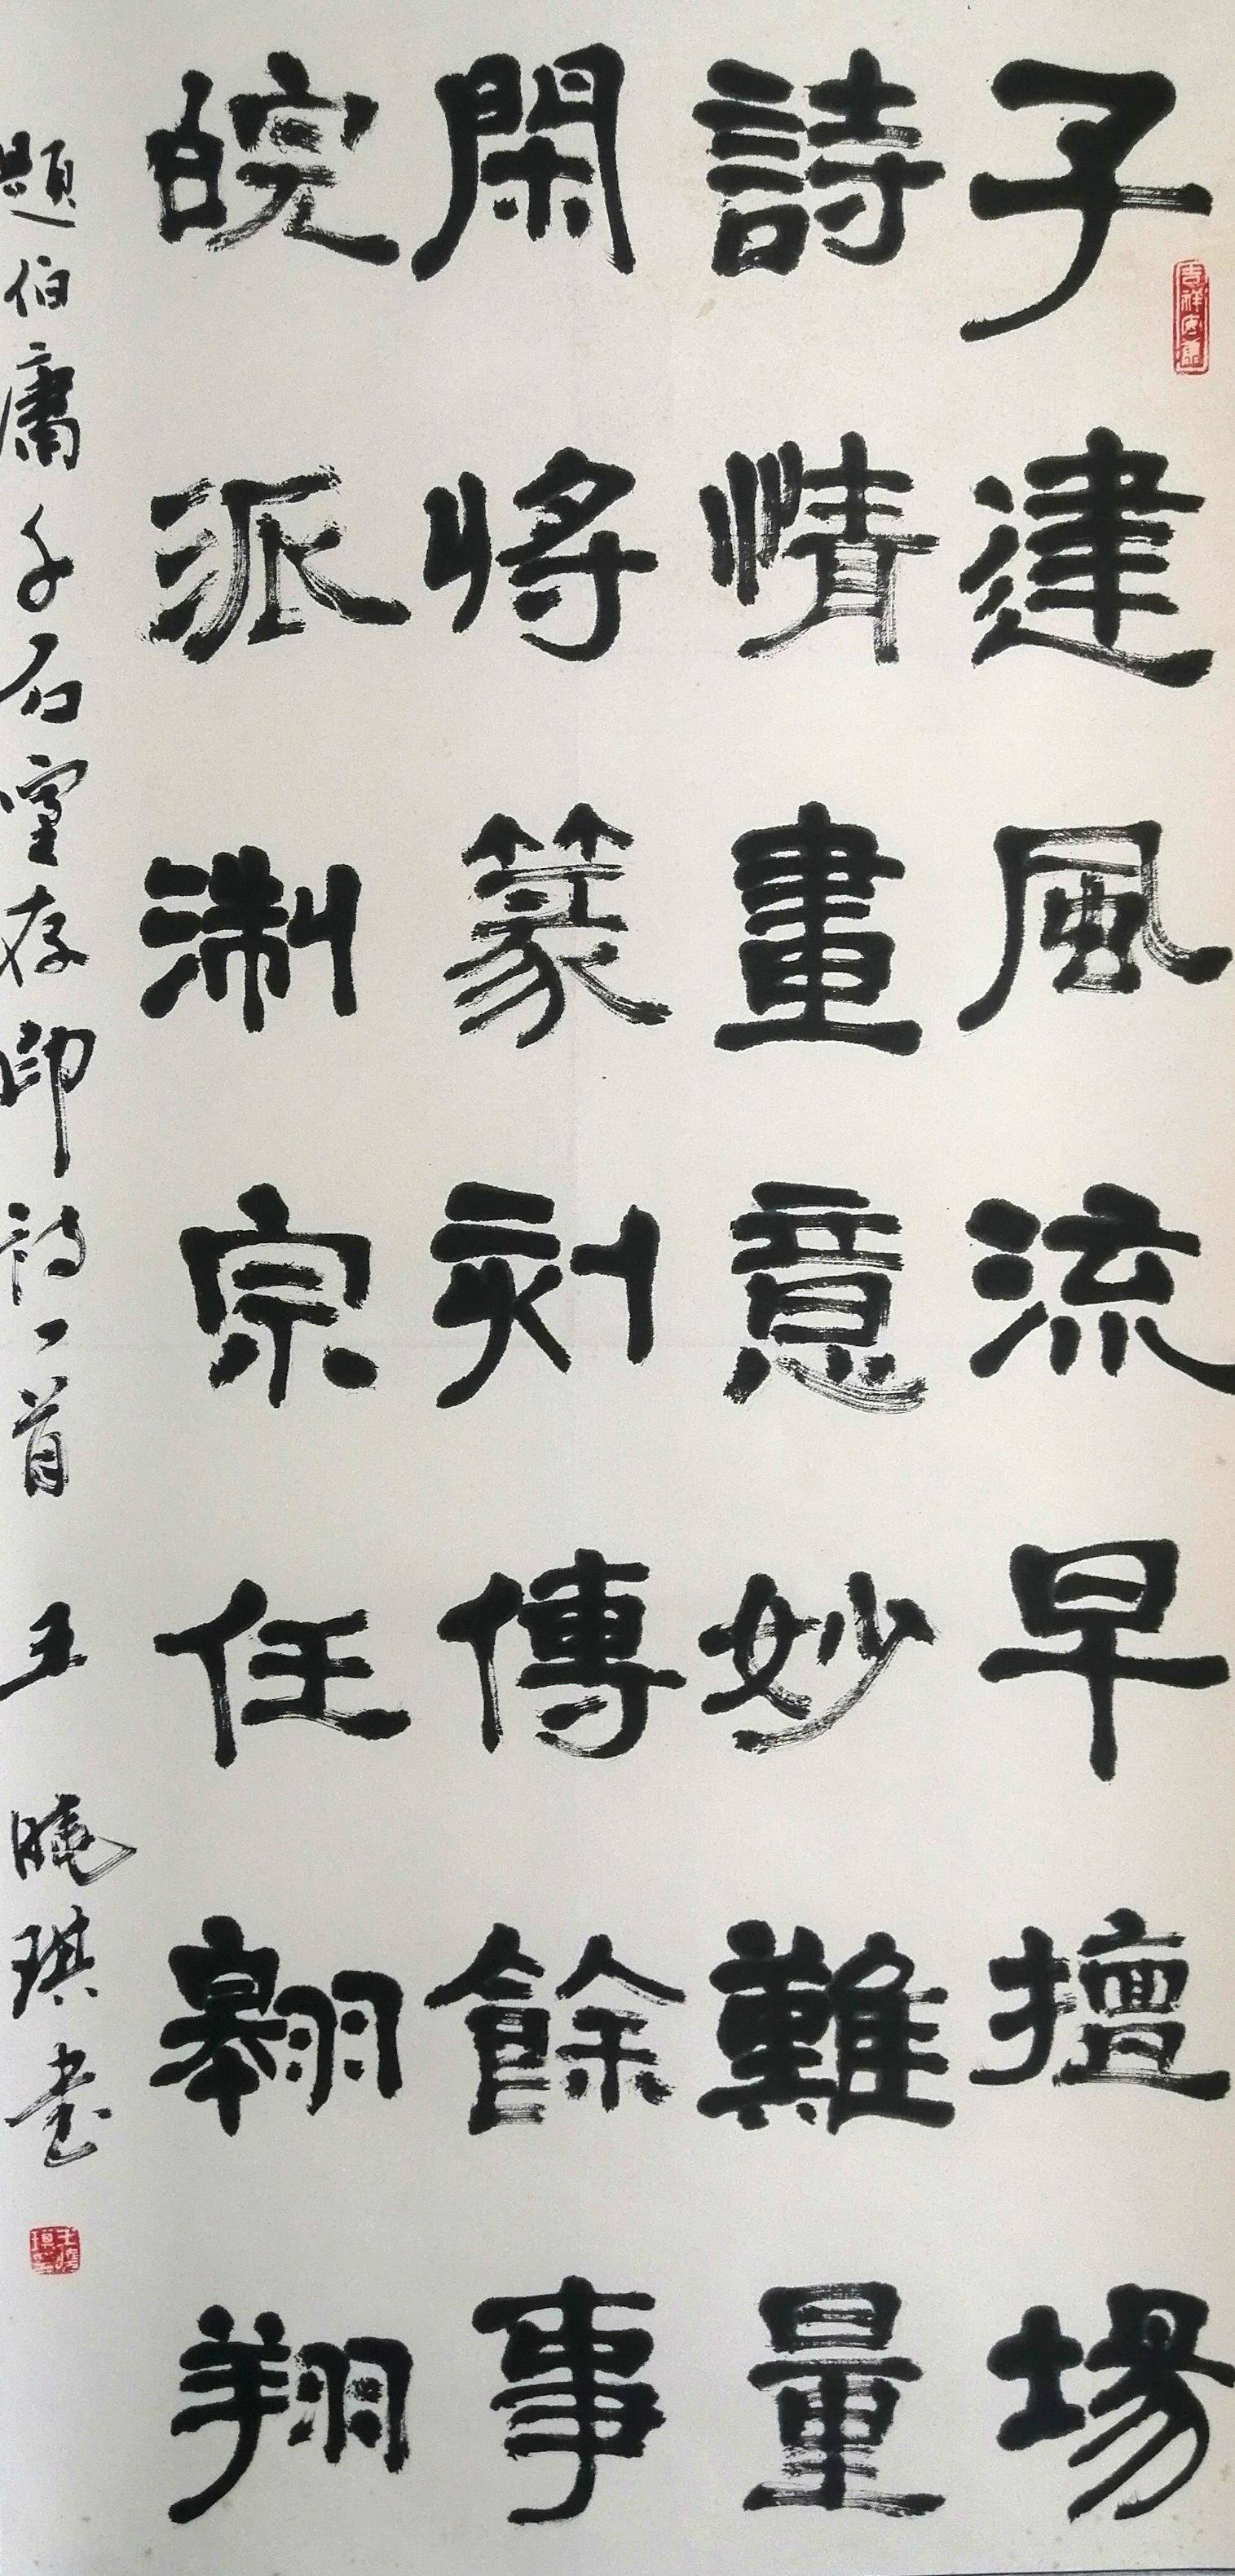 吉祥安康
子建風流早擅場
詩情畫意妙難量
閑將篆刻傳餘事
皖派淛宗任翱翔
題伯庸千石室存印詩一首 王曉琪書